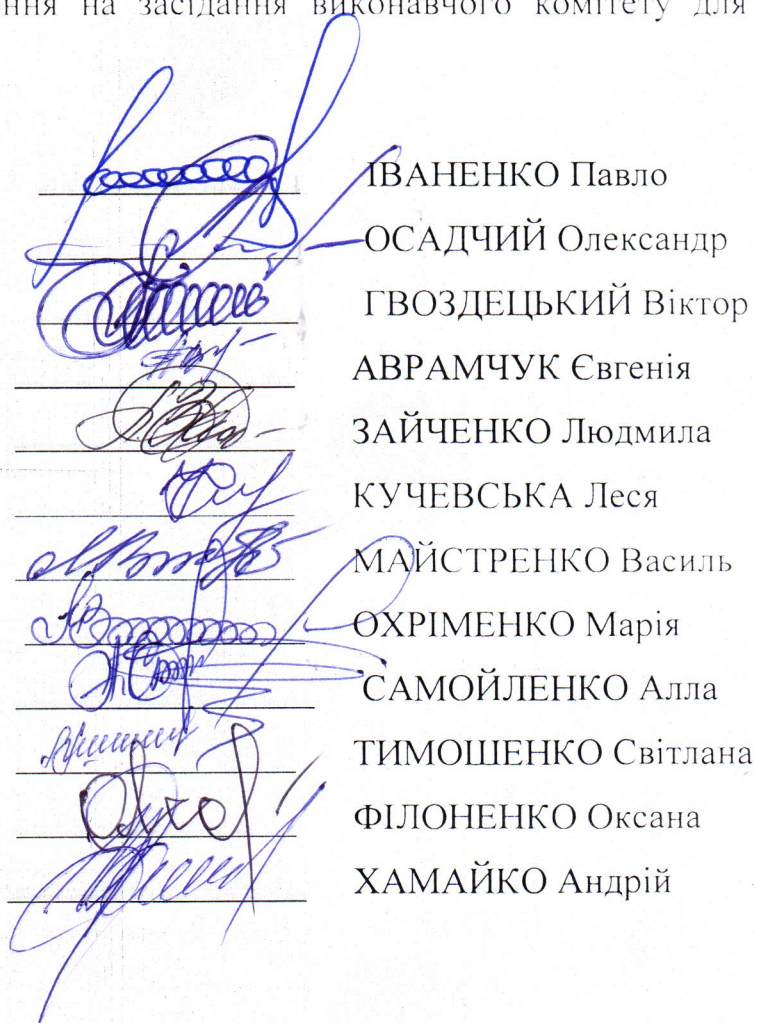 ння на засідання виконавчого комітету для
ІВАНЕНКО Павло
ОСАДЧИЙ Олександр
ГВОЗДЕЦЬКИЙ Віктор
АВРАМЧУК Євгенія
ЗАЙЧЕНКО Людмила
КУЧЕВСЬКА Леся
МАЙСТРЕНКО Василь
ОХРІМЕНКО Марія
САМОЙЛЕНКО Алла
ТИМОШЕНКО Світлана
ФІЛОНЕНКО Оксана
ХАМАЙКО Андрій